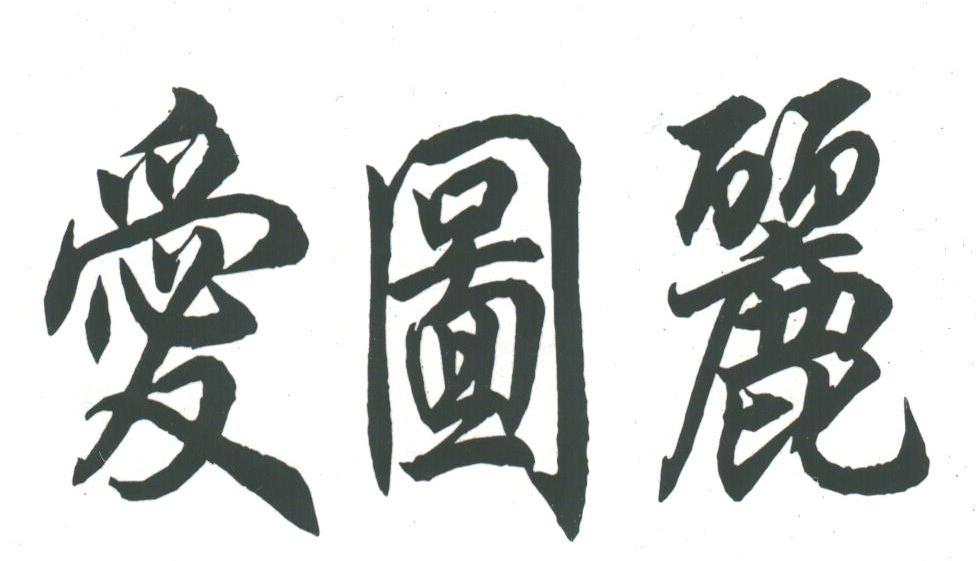 愛圖麗